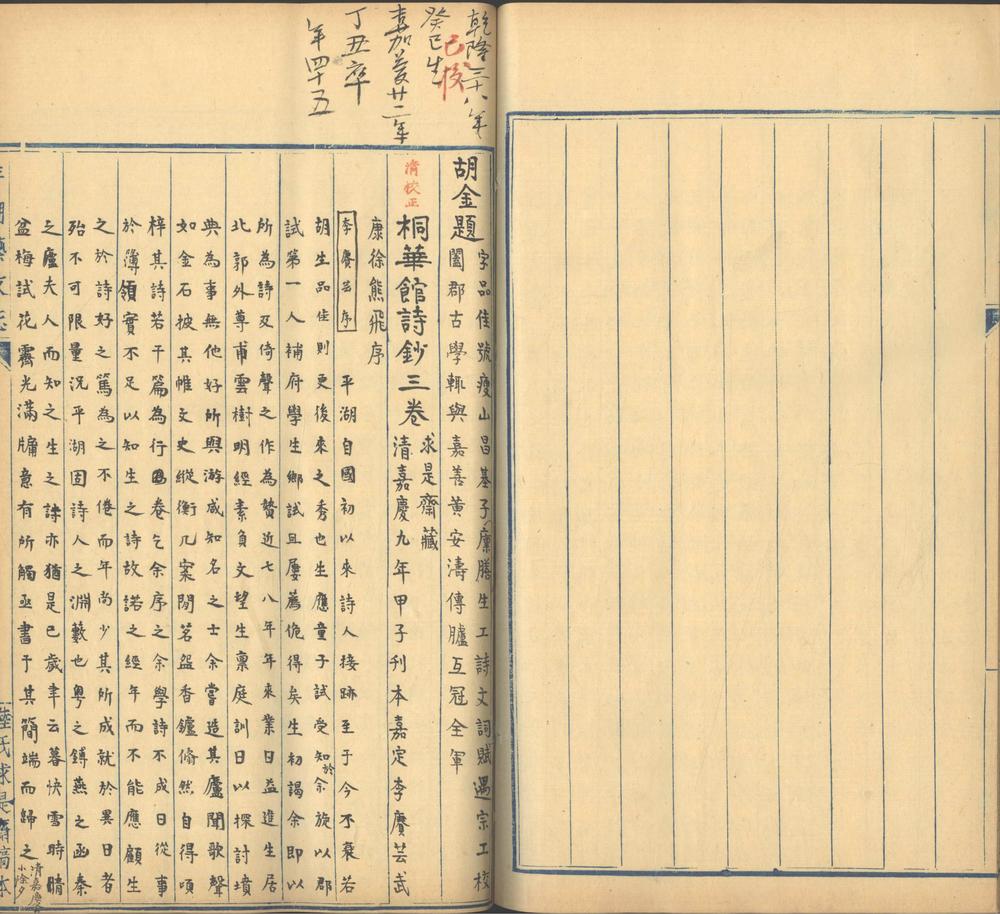 乾隆三十八年
癸巳生
已校
嘉慶廿二年
丁丑卒
年四十五
胡金題
字品佳號瘦山昌基子廩膳生工詩文詞賦遇宗工校
闔郡古學輒與嘉善黃安濤傳臚互冠全軍
清校正
桐華館詩鈔三卷
求是齋藏
清嘉慶九年甲子刊本嘉定李賡芸武
康徐熊飛序
李賡芸序
平湖自國初以來詩人接跡至于今不衰若
胡生品佳則更後來之秀也生應童子試受知於余旋以郡
試第一人補府學生鄉試且屢薦佹得矣生初謁余即以
所為詩及倚聲之作為贄近七八年年來業日益進生居
北郭外尊甫雲樹明經素負文望生稟庭訓日以探討墳
典為事無他好所與游咸知名之士余嘗造其廬聞歌聲
如金石披其帷文史縱衡几案閒茗盌香鑪翛然自得頃
梓其詩若干篇為行卷乞余序之余學詩不成日從事
於簿領實不足以知生之詩故諾之經年而不能應顧生
之於詩好之篤為之不倦而年尚少其所成就於異日者
殆不可限量況平湖固詩人之淵藪也粵之鎛燕之函秦
之廬夫人而知之生之詩亦猶是已歲聿云暮快雪時晴
盆梅試花霽光滿牖意有所觸亟書于其簡端而歸之
清嘉慶
小除夕
陸氏求是齋稿本